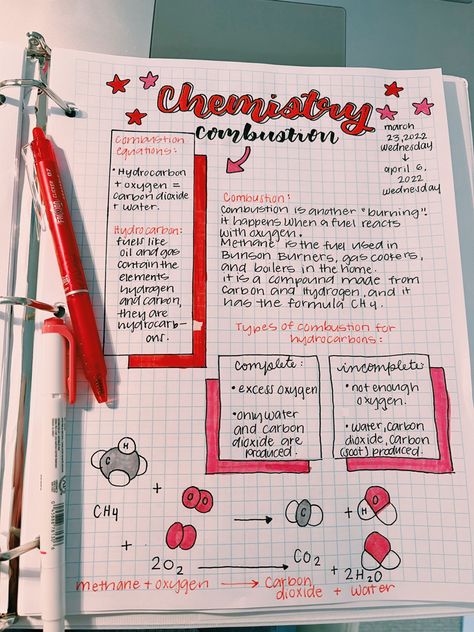 Chemistry
Combustion
march
23, 2022
wednesday
april 6,
2022
wednesday
Combustion
equations:
• Hydrocarbon
+ oxygen =
carbon dioxide
+ water.
Hydrocarbon:
fuels like
oil and gas
contain the
elements
hydrogen
and carbon,
they are
hydrocarb-
ons.
Combustion:
Combustion is another "burning".
it happens when a fuel reacts
with oxygen.
Methane is the fuel used in
Bunson Burners, gas cooters,
and boilers in the home.
it is a compound made from
carbon and Hydrogen, and it
has the formula CH4.
Types of combustion for
hydrocarbons:
complete:
• excess oxygen
• only water
and carbon
dioxide are
produced.
incomplete:
• not enough
oxygen.
• water, carbon
dioxide, carbon
(soot) produced.
C H
O O
C
H O
CH4
+
+
+
2O2
CO2
+
2H2O
methane + oxygen
carbon
dioxide + water